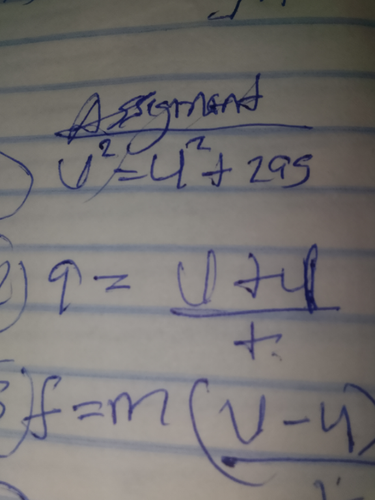 Assignment
) v² = u² + 2as
2) a = v + u
t
3) f = m (v - u)